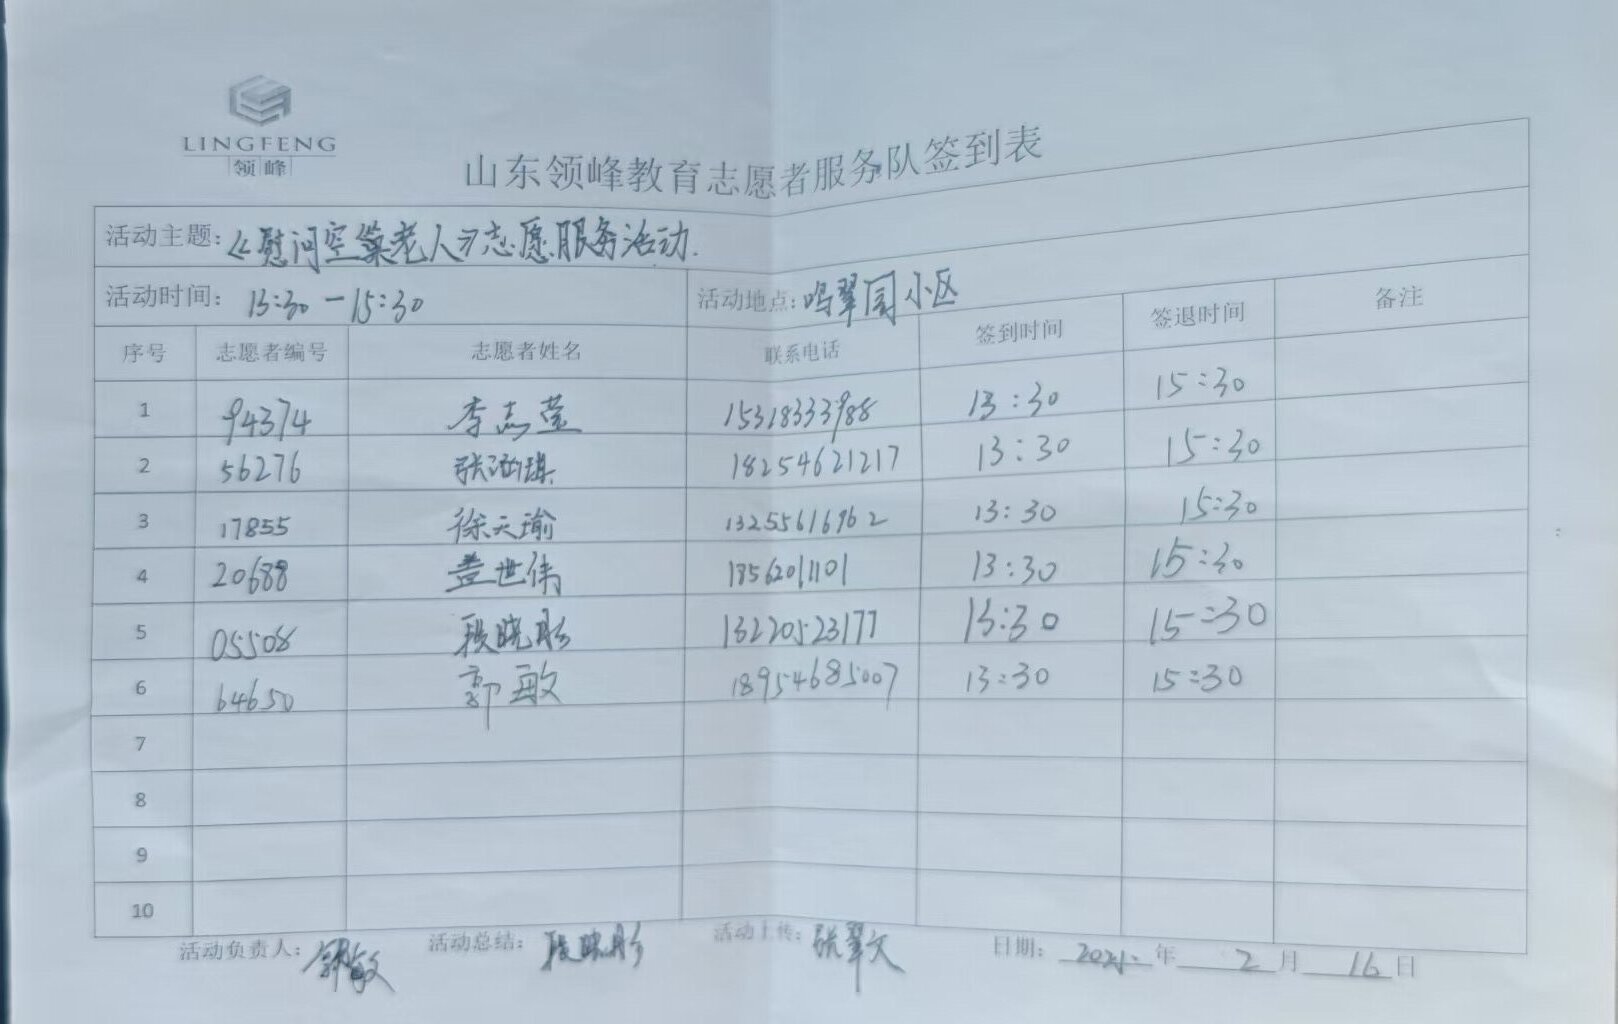 LINGFENG
领峰
山东领峰教育志愿者服务队签到表
活动主题:《慰问空巢老人》志愿服务活动.
活动时间: 13:30-15:30 活动地点: 鸣翠园小区
序号 志愿者编号 志愿者姓名 联系电话 签到时间 签退时间 备注
1 94374 李志莹 15318333988 13:30 15:30
2 56276 18254621217 13:30 15:30
3 17855 徐天瑜 13255616962 13:30 15:30
4 20688 盖世伟 18562011101 13:30 15:30
5 05508 段晓彤 13220523177 13:30 15:30
6 64650 郭敏 18954685007 13:30 15:30
7
8
9
10
活动负责人: 郭敏 活动总结: 段晓彤 活动上传: 张翠文 日期: 年 2 月 16 日